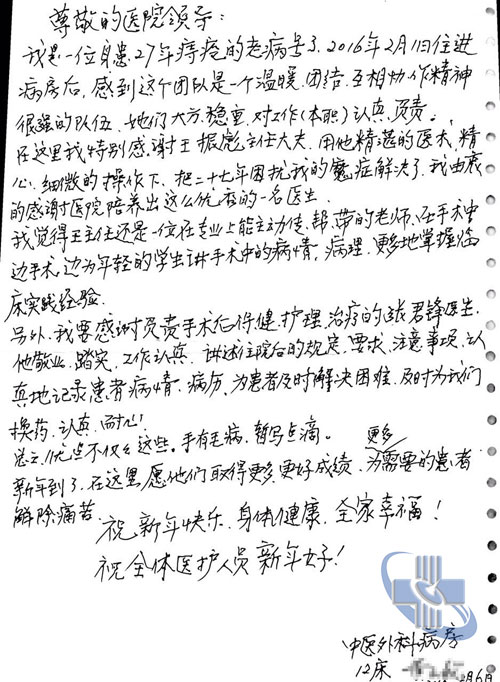 尊敬的医院领导：
我是一位身患27年痔疮的老病号了，2016年2月1日住进
病房后，感到这个团队是一个温暖、团结、互相协作精神
很强的队伍，她们大方、稳重，对工作（本职）认真、负责。
在这里我特别感谢王振彪主任大夫，用他精湛的医术，精
心、细微的操作下，把二十七年困扰我的魔症解决了，我由衷
的感谢医院培养出这么优秀的一名医生。
我觉得王主任还是一位在专业上能主动传、帮、带的老师，在手术中
边手术，边为年轻的学生讲手术中的病情，病理，更多地掌握临
床实践经验。
另外，我要感谢负责手术后保健、护理、治疗的张君锋医生，
他敬业、踏实、工作认真，讲述住院后的规定，要求，注意事项，认
真地记录患者病情、病历，为患者及时解决困难，及时为我们
换药，认真、耐心。
总之，优点不仅仅这些。手有毛病，暂写点滴。
新年到了，在这里，愿他们取得更多、更好成绩，为更多需要的患者
解除痛苦。
祝新年快乐，身体健康，全家幸福！
祝全体医护人员新年好！
中医外科病房
12床
2月6日